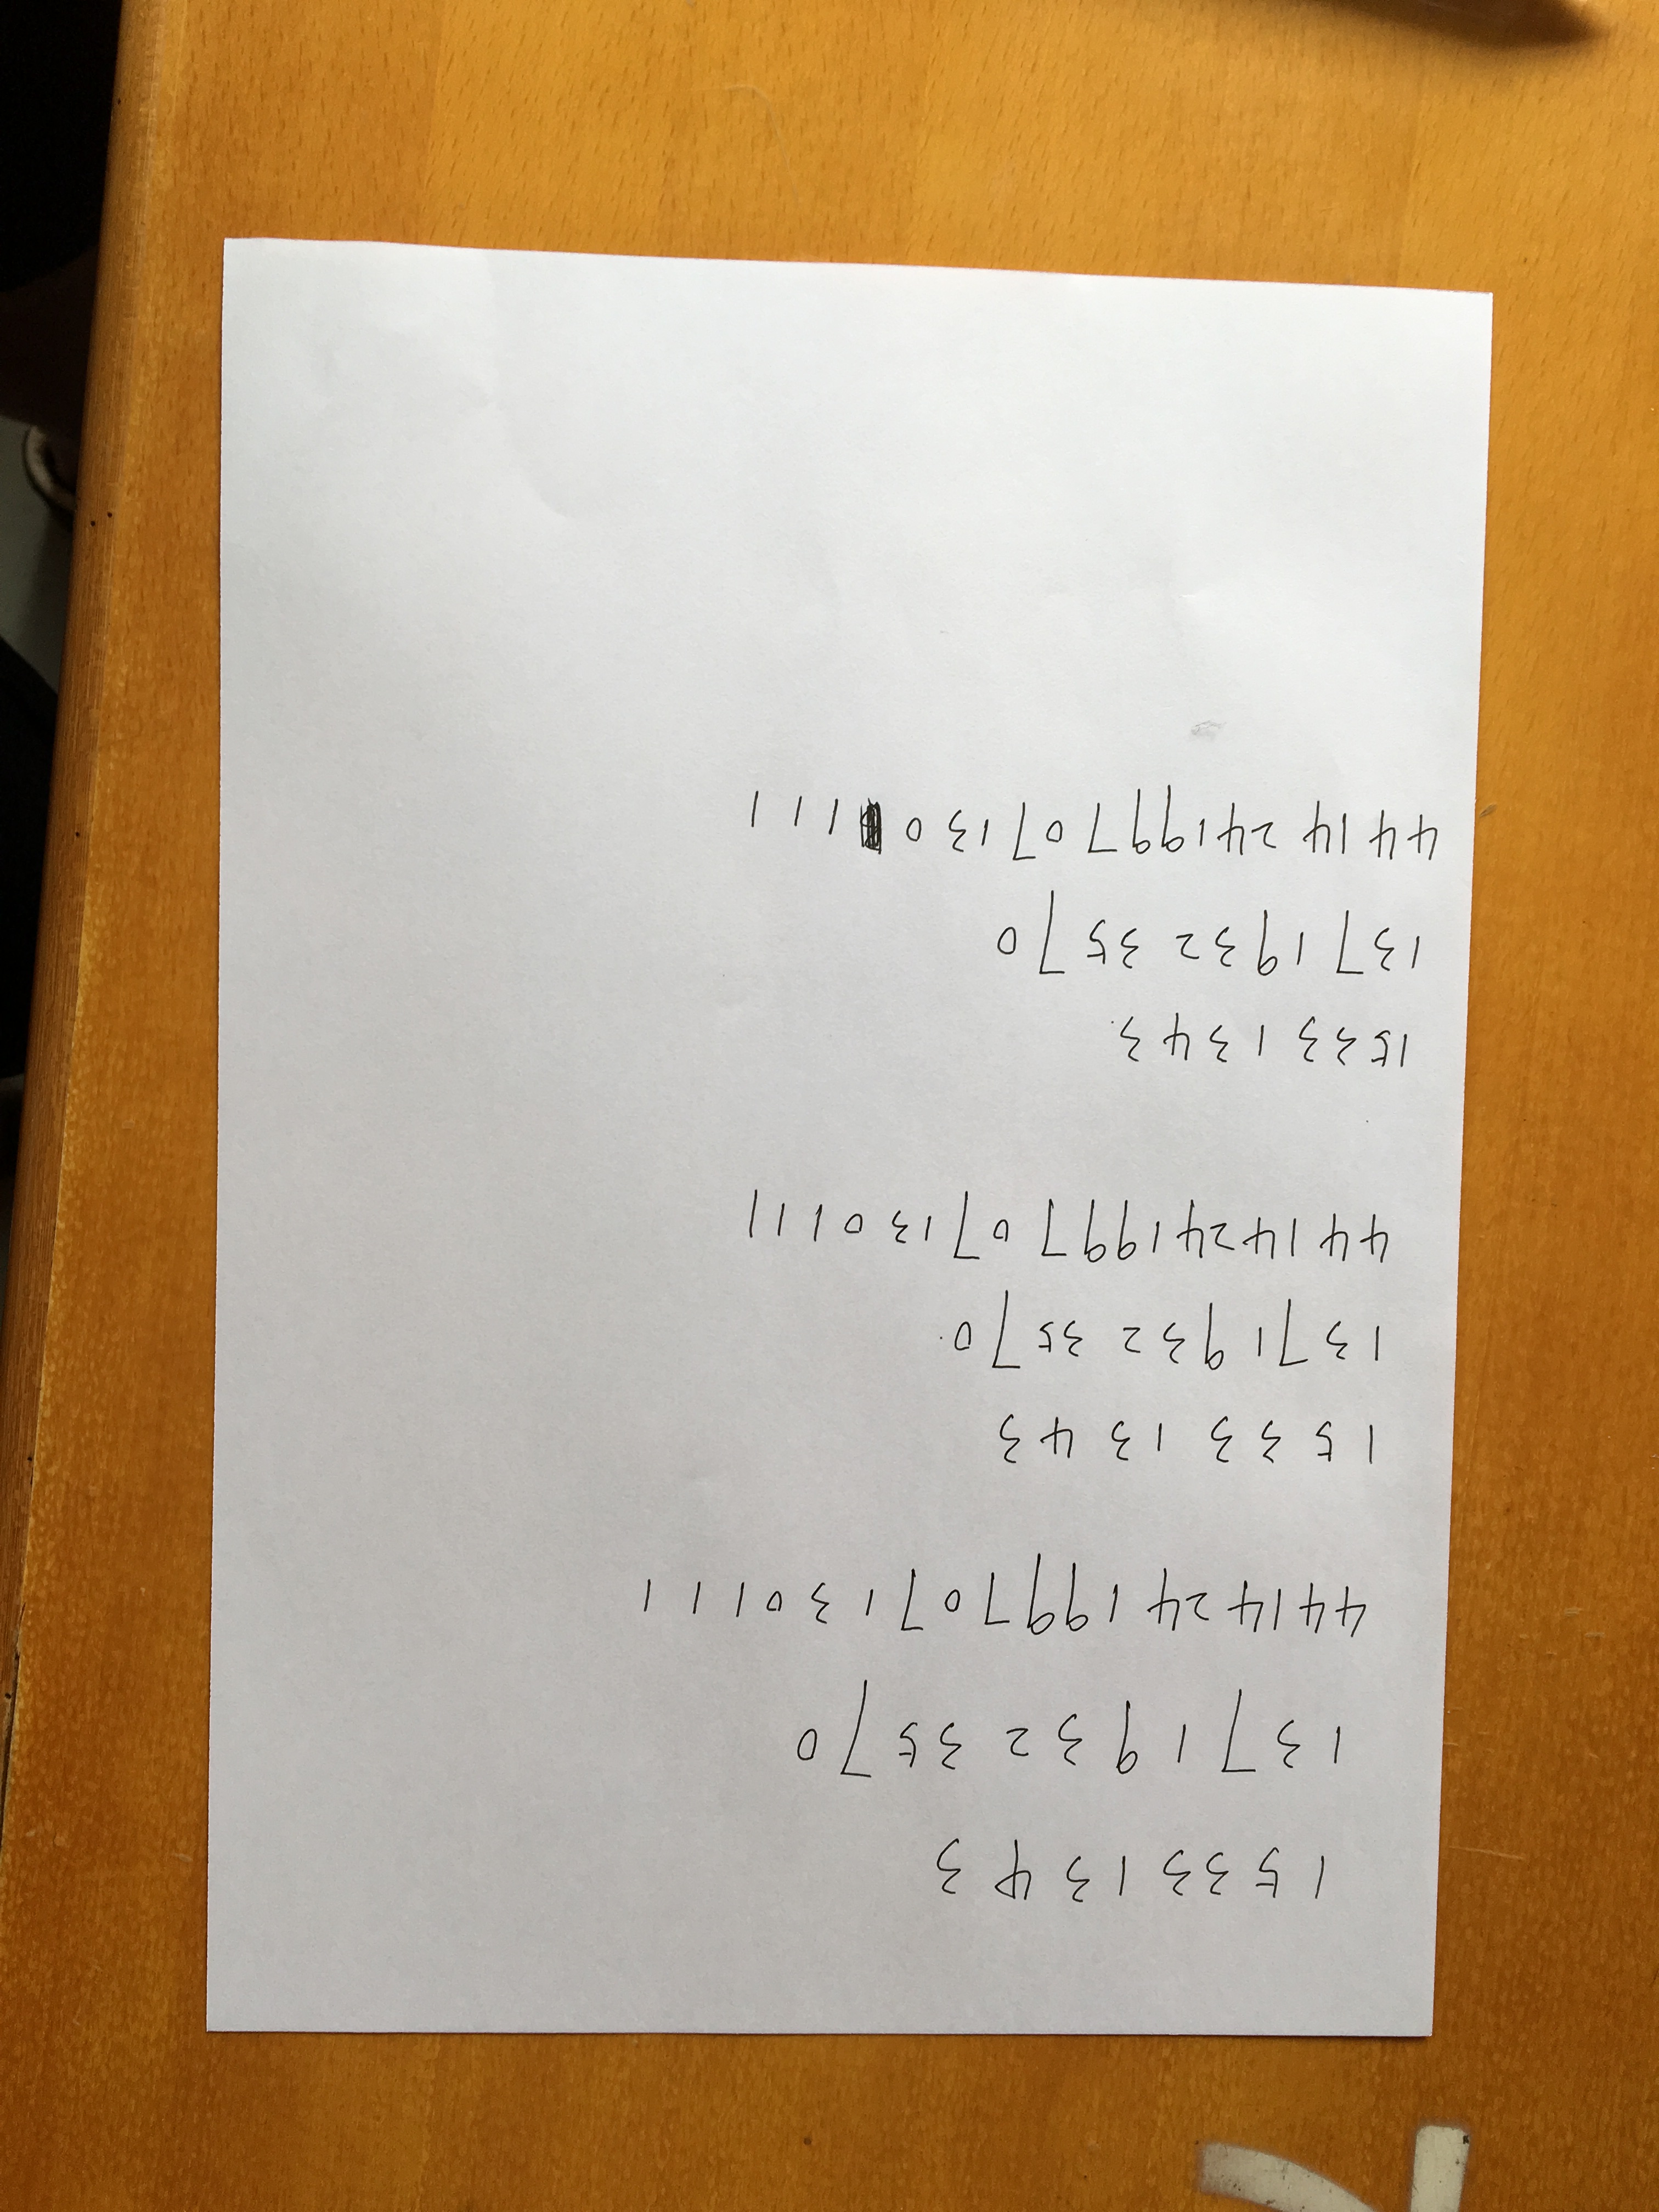 1533 1343
1371932 3570
44142419970713 0111
1533 13 43
1371932 3570
441424199707130111
1533 1343
1371932 3570
441424199707130111